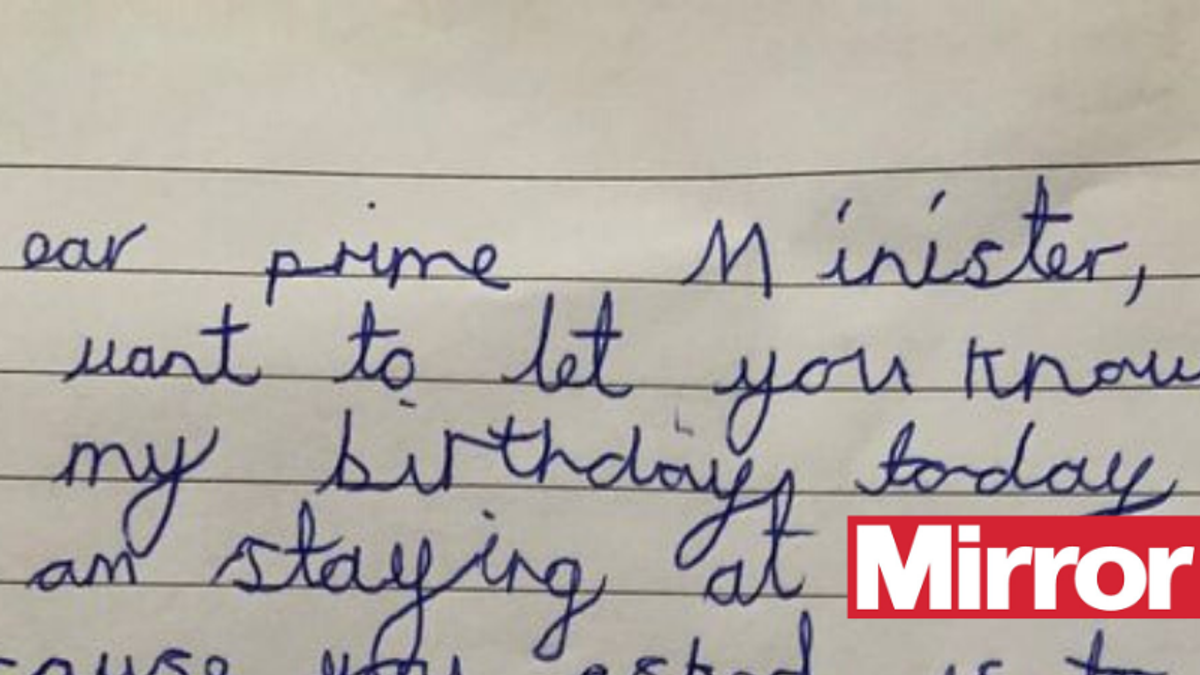 ear prime Minister,
want to let you know
my birthday, today
am staying at
Mirror
cause you asked us to